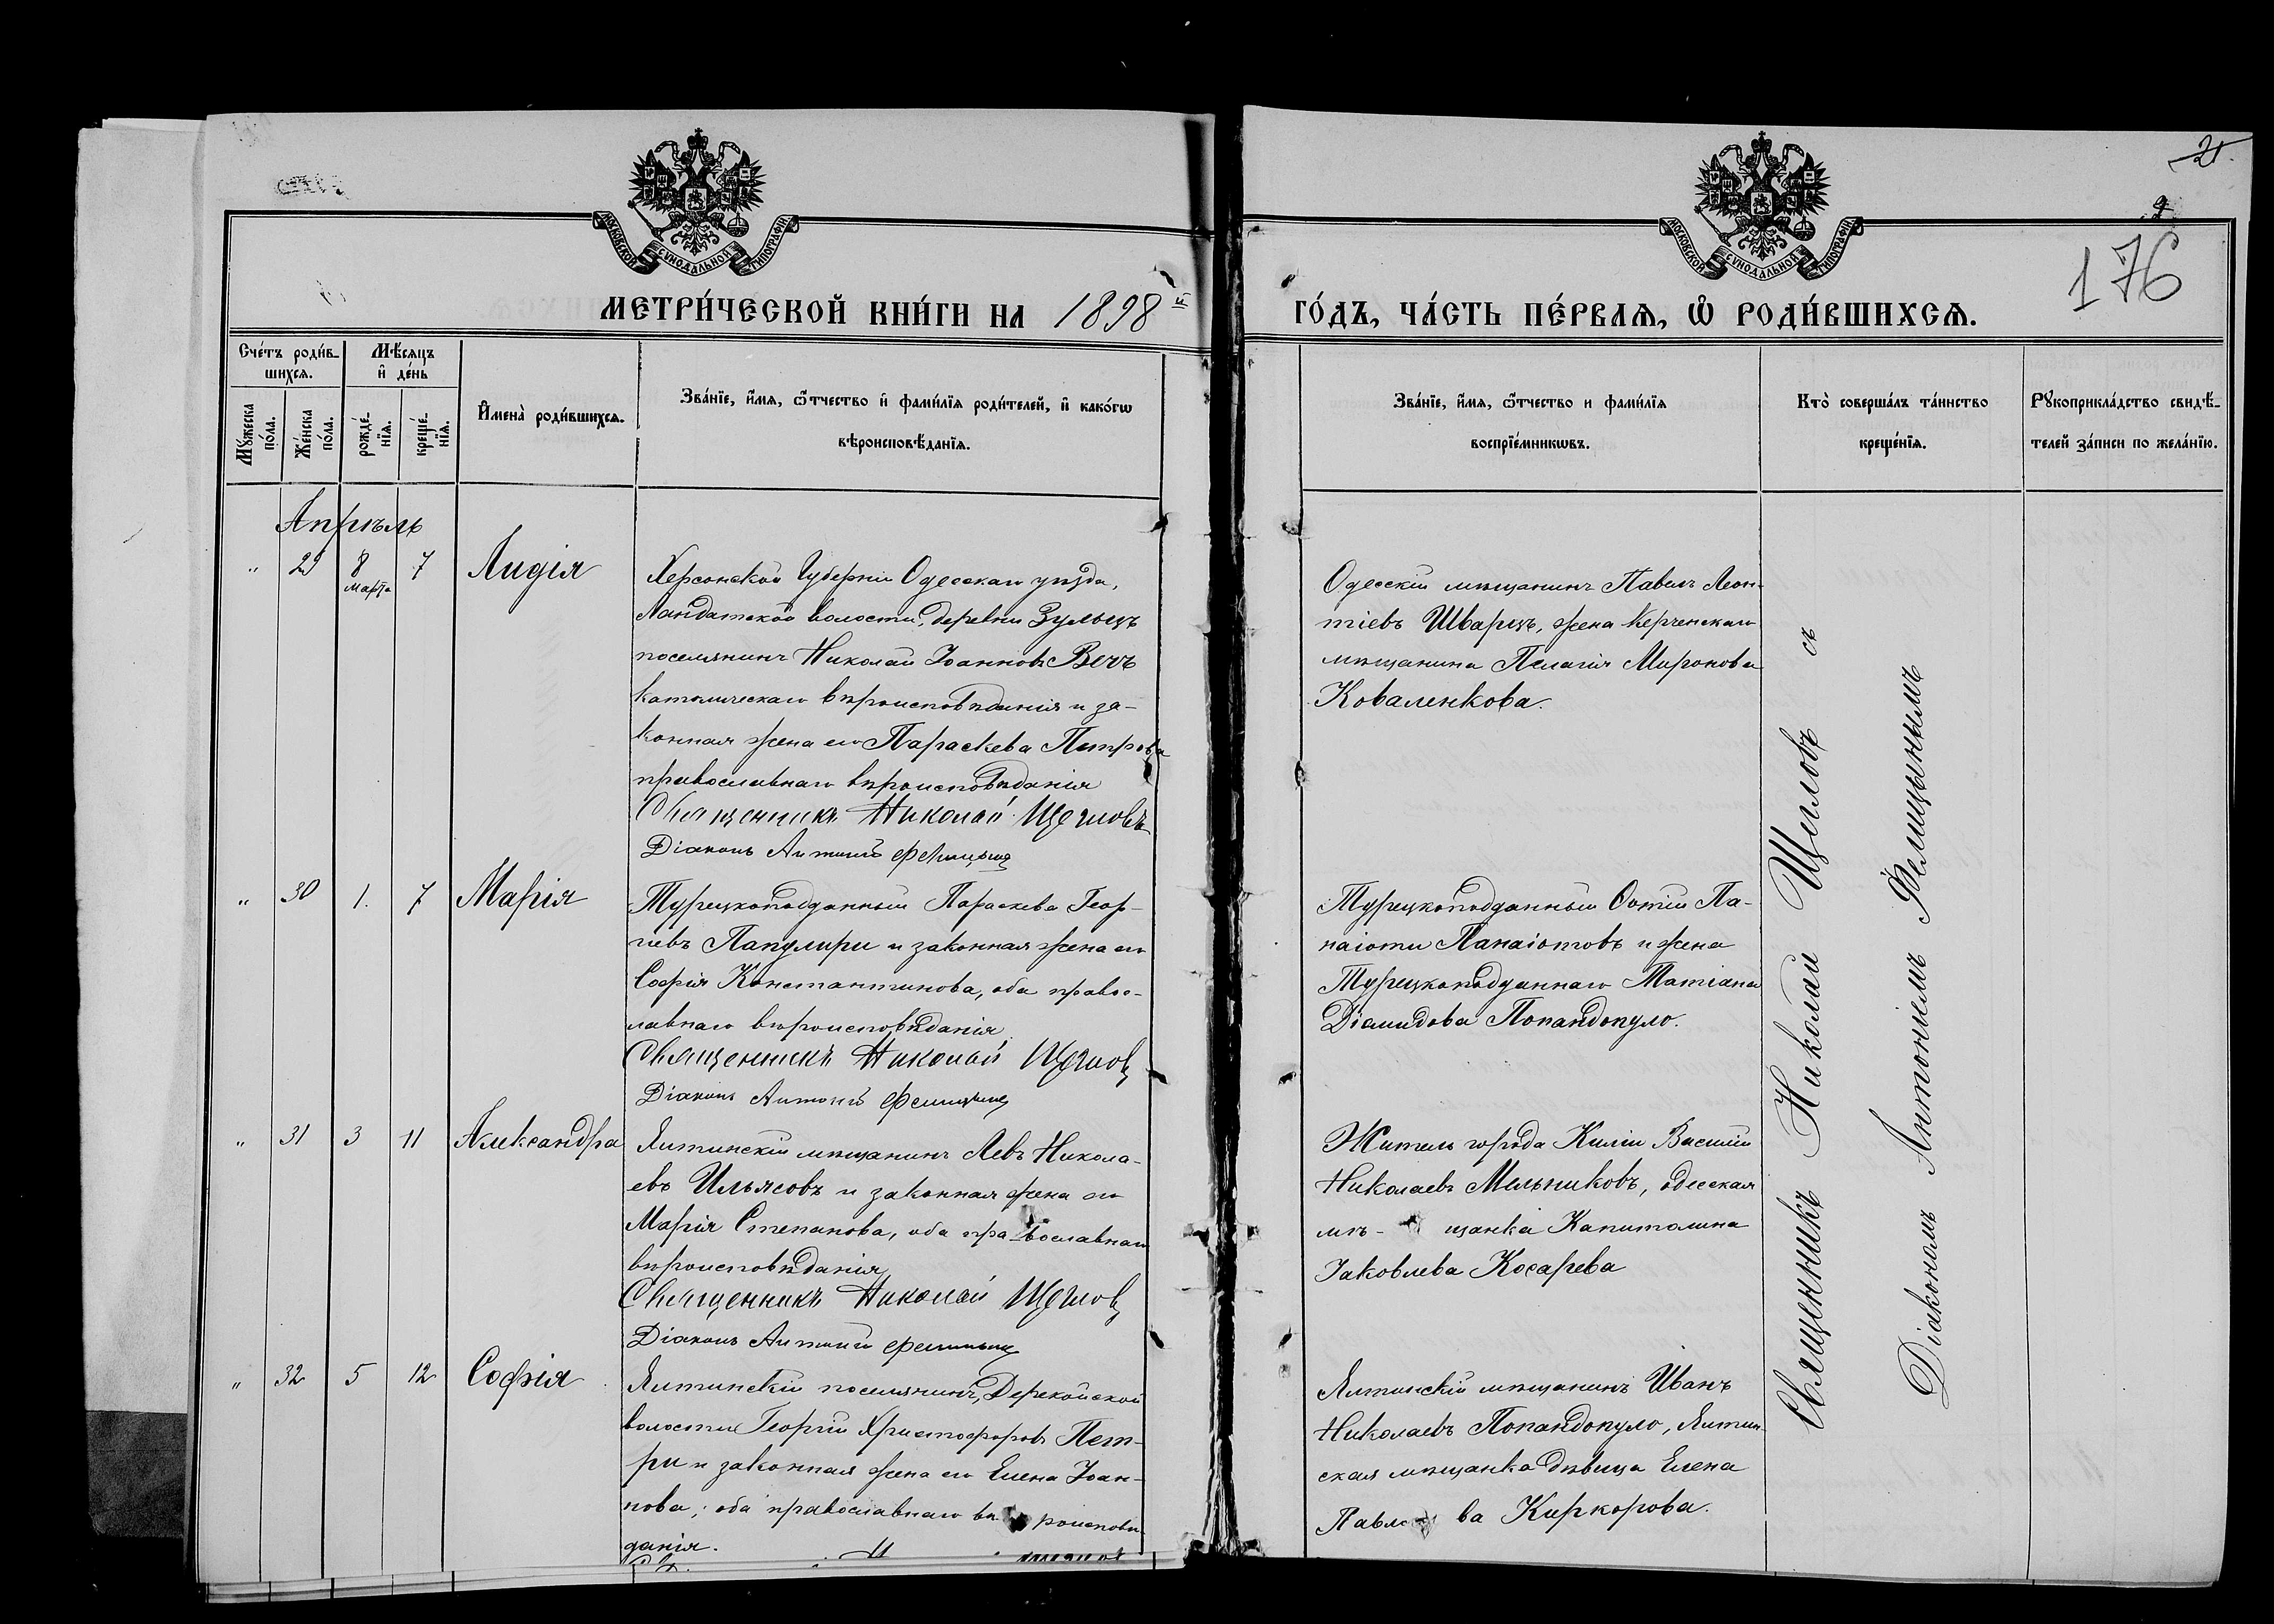 21.
2
176
МОСКОВСКОЙ СѴНОДАЛЬНОЙ ТИПОГРАФІИ
МОСКОВСКОЙ СѴНОДАЛЬНОЙ ТИПОГРАФІИ
МЕТРИ́ЧЕСКОЙ КНИ́ГИ НА 1898 й
ГО́ДЪ, ЧА́СТЬ ПЕ́РВАѦ, Ѽ РОДИ́ВШИХСѦ.
Сче́тъ роди́в-
шихсѧ.
Мѣ́сѧцъ
и҆ де́нь
Мꙋ́жеска
по́ла.
Же́нска
по́ла.
рожде́-
нїѧ.
креще́-
нїѧ.
И҆мена̀ роди́вшихсѧ.
Зва́нїе, и҆́мѧ, ѻ҆́тчество и҆ фами́лїѧ роди́телей, и҆ како́гѡ
вѣроисповѣ́данїѧ.
Зва́нїе, и҆́мѧ, ѻ҆́тчество и фами́лїѧ
воспрїе́мникѡвъ.
Кто̀ соверша́лъ та́инство
креще́нїѧ.
Рꙋкоприкла́дство свидѣ́-
телей за́писи по жела́нїю.
Апрѣль
" 29 8 марта 7 Лидія
Херсонской Губерніи Одесскаго уѣзда,
Ландатской волости, деревни Зульцъ
поселянинъ Николай Іоанновъ Вечъ
католическаго вѣроисповѣданія и за-
конная жена его Параскева Петрова
православнаго вѣроисповѣданія
Священникъ Николай Щегловъ
Діаконъ Антоній Фелицынъ
Одесскій мѣщанинъ Павелъ Леон-
тіевъ Шварцъ, жена Керченскаго
мѣщанина Пелагія Миронова
Коваленкова.
" 30 1. 7 Марія
Турецкоподданный Параскева Геор-
гіевъ Папулири и законная жена его
Софія Константинова, оба правос-
лавнаго вѣроисповѣданія
Священникъ Николай Щегловъ
Діаконъ Антоній Фелицынъ
Турецкоподданный Фотій Па-
наіоти Панаіотовъ и жена
Турецкоподданнаго Матіана
Діамидова Попандопуло.
" 31 3 11 Александра
Ялтинскій мѣщанинъ Левъ Никола-
евъ Ильясовъ и законная жена его
Марія Степанова, оба православнаго
вѣроисповѣданія
Священникъ Николай Щегловъ
Діаконъ Антоній Фелицынъ
Житель города Киліи Василій
Николаевъ Мельниковъ, одесская
мѣ- щанка Капитолина
Іаковлева Косарева
" 32 5 12 Софія
Ялтинскій поселянинъ, Дерекойской
волости Георгій Христофоровъ Пет-
ри и законная жена его Елена Іоан-
нова; оба православнаго вѣроисповѣ-
данія.
Ялтинскій мѣщанинъ Иванъ
Николаевъ Попандопуло, Ялтин-
ская мѣщанка дѣвица Елена
Павлова Киркорова.
Священникъ Николай Щегловъ съ
Діакономъ Антоніемъ Фелицынымъ